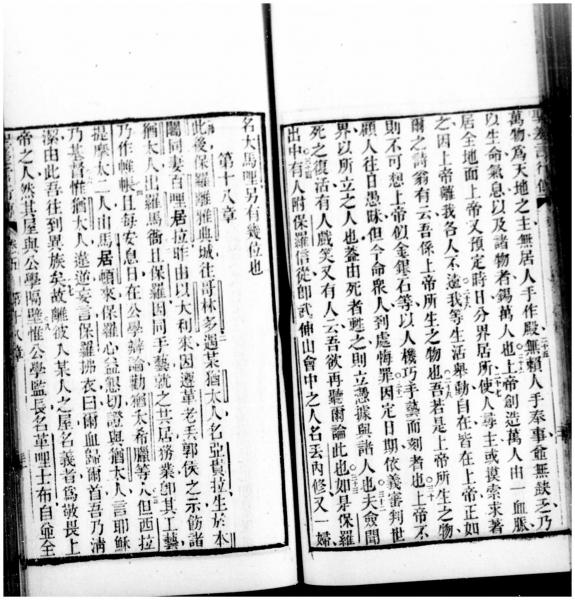 萬物爲天地之主無居人手作殿無賴人手奉事爺無缺乏乃
以生命氣息以及諸物者錫萬人也上帝創造萬人由一血脹
居全地面上帝又預定時日分界居所使人尋主或摸索求著
之因上帝離我各人不遠我等生活舉動自在皆在上帝正如
爾之詩翁有云吾係上帝所生之物也吾若是上帝所生之物
則不可想上帝似金銀石等以人機巧手藝而刻者也上帝不
顧人往日愚昧但今命衆人到處悔罪因定日期依義審判世
界以所立之人也蓋由死者甦之則立憑據與諸人也夫僉聞
死之復活有人戲笑又有人云吾欲再聽爾論此也如是保羅
出中有人附保羅信從卽武伸山會中之人名丟內修又一婦
名大馬哩另有幾位也
第十八章
此後保羅離雅典城往哥林多遇某猶太人名亞貴拉生於本
闊同妻百哩居拉昨由以大利來因遵革老丟郭侯之示飭諸
猶太人出羅馬衙且保羅因同手藝就之共居務業卽其工藝
乃作帷帳且每安息日在公學辯論勸猶太希臘等人但西拉
提摩太二人出馬居頓來保羅心益懇切證與猶太人言耶穌
乃基督惟猶太人違逆妄言保羅拂衣曰爾血歸爾首吾乃淸
潔由此吾往到異族矣故離彼人某人之屋名義督爲敬畏上
帝之人然其屋與公學隔壁惟公學監長名革哩士布自並全